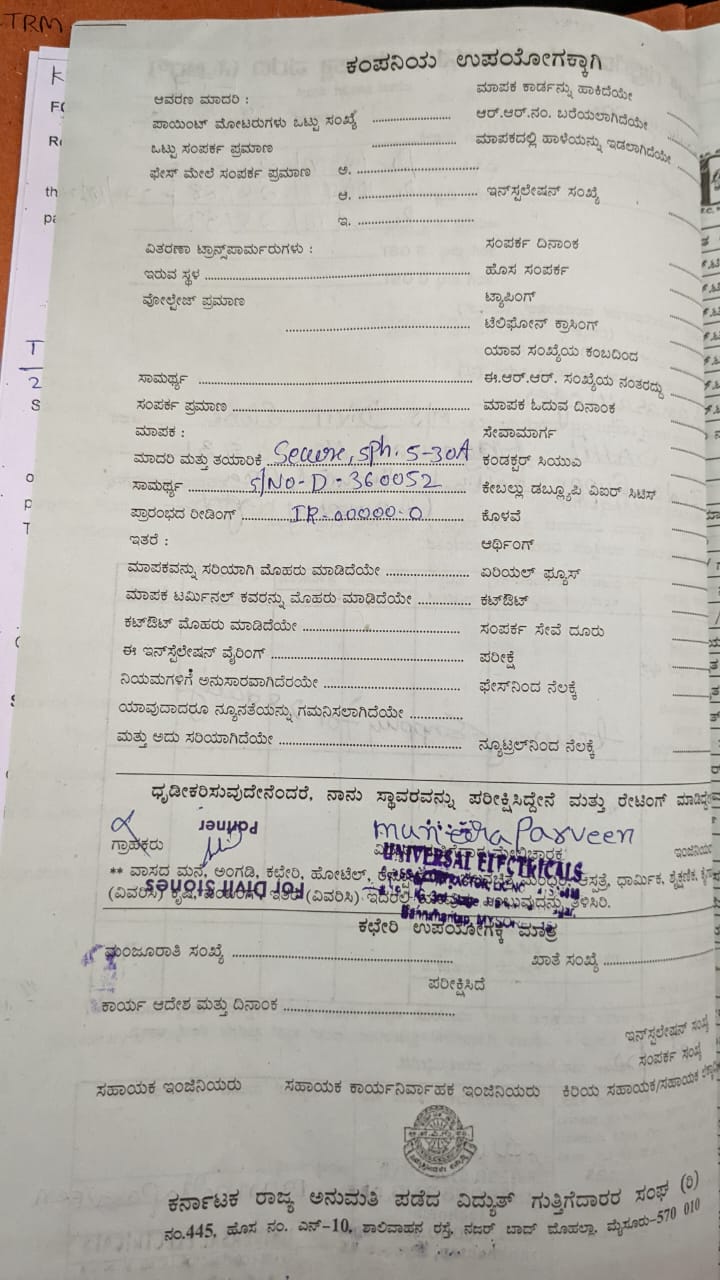 TRM
ಕಂಪನಿಯ ಉಪಯೋಗಕ್ಕಾಗಿ
ಆವರಣ ಮಾದರಿ : ಮಾಪಕ ಕಾರ್ಡನ್ನು ಹಾಕಿದೆಯೇ
ಪಾಯಿಂಟ್ ಮೋಟರುಗಳು ಒಟ್ಟು ಸಂಖ್ಯೆ ........ ಆರ್.ಆರ್.ನಂ. ಬರೆಯಲಾಗಿದೆಯೇ
ಒಟ್ಟು ಸಂಪರ್ಕ ಪ್ರಮಾಣ ........ ಮಾಪಕದಲ್ಲಿ ಹಾಳೆಯನ್ನು ಇಡಲಾಗಿದೆಯೇ
ಫೇಸ್ ಮೇಲೆ ಸಂಪರ್ಕ ಪ್ರಮಾಣ ಅ. ........
ಆ. ........ ಇನ್‌ಸ್ಟಲೇಷನ್ ಸಂಖ್ಯೆ
ಇ. ........
ವಿತರಣಾ ಟ್ರಾನ್ಸ್‌ಪಾರ್ಮರುಗಳು : ಸಂಪರ್ಕ ದಿನಾಂಕ
ಇರುವ ಸ್ಥಳ ........ ಹೊಸ ಸಂಪರ್ಕ
ವೋಲ್ಟೇಜ್ ಪ್ರಮಾಣ ಟ್ಯಾಪಿಂಗ್
........ ಟೆಲಿಫೋನ್ ಕ್ರಾಸಿಂಗ್
ಯಾವ ಸಂಖ್ಯೆಯ ಕಂಬದಿಂದ
ಸಾಮರ್ಥ್ಯ ........ ಈ.ಆರ್.ಆರ್. ಸಂಖ್ಯೆಯ ನಂತರದ್ದು
ಸಂಪರ್ಕ ಪ್ರಮಾಣ ........ ಮಾಪಕ ಓದುವ ದಿನಾಂಕ
ಮಾಪಕ : ಸೇವಾಮಾರ್ಗ
ಮಾದರಿ ಮತ್ತು ತಯಾರಿಕೆ Secure, 3ph. 5-30A ಕಂಡಕ್ಟರ್ ಸಿಯುಎ
ಸಾಮರ್ಥ್ಯ S/NO-D-360052 ಕೇಬಲ್ಲು ಡಬ್ಲ್ಯೂಪಿ ವಿಐರ್ ಸಿಟಿಸ್
ಪ್ರಾರಂಭದ ರೀಡಿಂಗ್ IR-00000-0 ಕೊಳವೆ
ಇತರೆ : ಆರ್ಥಿಂಗ್
ಮಾಪಕವನ್ನು ಸರಿಯಾಗಿ ಮೊಹರು ಮಾಡಿದೆಯೇ ........ ಏರಿಯಲ್ ಫ್ಯೂಸ್
ಮಾಪಕ ಟರ್ಮಿನಲ್ ಕವರನ್ನು ಮೊಹರು ಮಾಡಿದೆಯೇ ........ ಕಟ್‌ಔಟ್
ಕಟ್‌ಔಟ್ ಮೊಹರು ಮಾಡಿದೆಯೇ ........ ಸಂಪರ್ಕ ಸೇವೆ ದೂರು
ಈ ಇನ್‌ಸ್ಟೆಲೇಷನ್ ವೈರಿಂಗ್ ........ ಪರೀಕ್ಷೆ
ನಿಯಮಗಳಿಗೆ ಅನುಸಾರವಾಗಿದೆರಯೇ ........ ಫೇಸ್‌ನಿಂದ ನೆಲಕ್ಕೆ
ಯಾವುದಾದರೂ ನ್ಯೂನತೆಯನ್ನು ಗಮನಿಸಲಾಗಿದೆಯೇ ........
ಮತ್ತು ಅದು ಸರಿಯಾಗಿದೆಯೇ ........ ನ್ಯೂಟ್ರಲ್‌ನಿಂದ ನೆಲಕ್ಕೆ
ಧೃಡೀಕರಿಸುವುದೇನೆಂದರೆ, ನಾನು ಸ್ಥಾವರವನ್ನು ಪರೀಕ್ಷಿಸಿದ್ದೇನೆ ಮತ್ತು ರೇಟಿಂಗ್
Partner Muneera Parveen
ಗ್ರಾಹಕರು
UNIVERSAL ELECTRICALS
** ವಾಸದ ಮನೆ, ಅಂಗಡಿ, ಕಛೇರಿ, ಹೋಟೆಲ್, ಆಸ್ಪತ್ರೆ, ಧಾರ್ಮಿಕ, ಶೈಕ್ಷಣಿಕ,
For Divit Stones
(ವಿವರಿಸಿ) ಇತರೆ (ವಿವರಿಸಿ) ತಿಳಿಸಿರಿ.
ಕಛೇರಿ ಉಪಯೋಗಕ್ಕೆ ಮಾತ್ರ
ಮಂಜೂರಾತಿ ಸಂಖ್ಯೆ ........ ಖಾತೆ ಸಂಖ್ಯೆ ........
ಪರೀಕ್ಷಿಸಿದೆ
ಕಾರ್ಯ ಆದೇಶ ಮತ್ತು ದಿನಾಂಕ ........
ಇನ್‌ಸ್ಟಲೇಷನ್ ಸಂಖ್ಯೆ
ಸಂಪರ್ಕ ಸಂಖ್ಯೆ
ಸಹಾಯಕ ಇಂಜಿನಿಯರು ಸಹಾಯಕ ಕಾರ್ಯನಿರ್ವಾಹಕ ಇಂಜಿನಿಯರು ಕಿರಿಯ ಸಹಾಯಕ/ಸಹಾಯಕ
ಕರ್ನಾಟಕ ರಾಜ್ಯ ಅನುಮತಿ ಪಡೆದ ವಿದ್ಯುತ್ ಗುತ್ತಿಗೆದಾರರ ಸಂಘ (ರಿ)
ನಂ.445, ಹೊಸ ನಂ. ಎನ್-10, ಶಾಲಿವಾಹನ ರಸ್ತೆ, ನಜರ್ ಬಾದ್ ಮೊಹಲ್ಲಾ, ಮೈಸೂರು-570 010